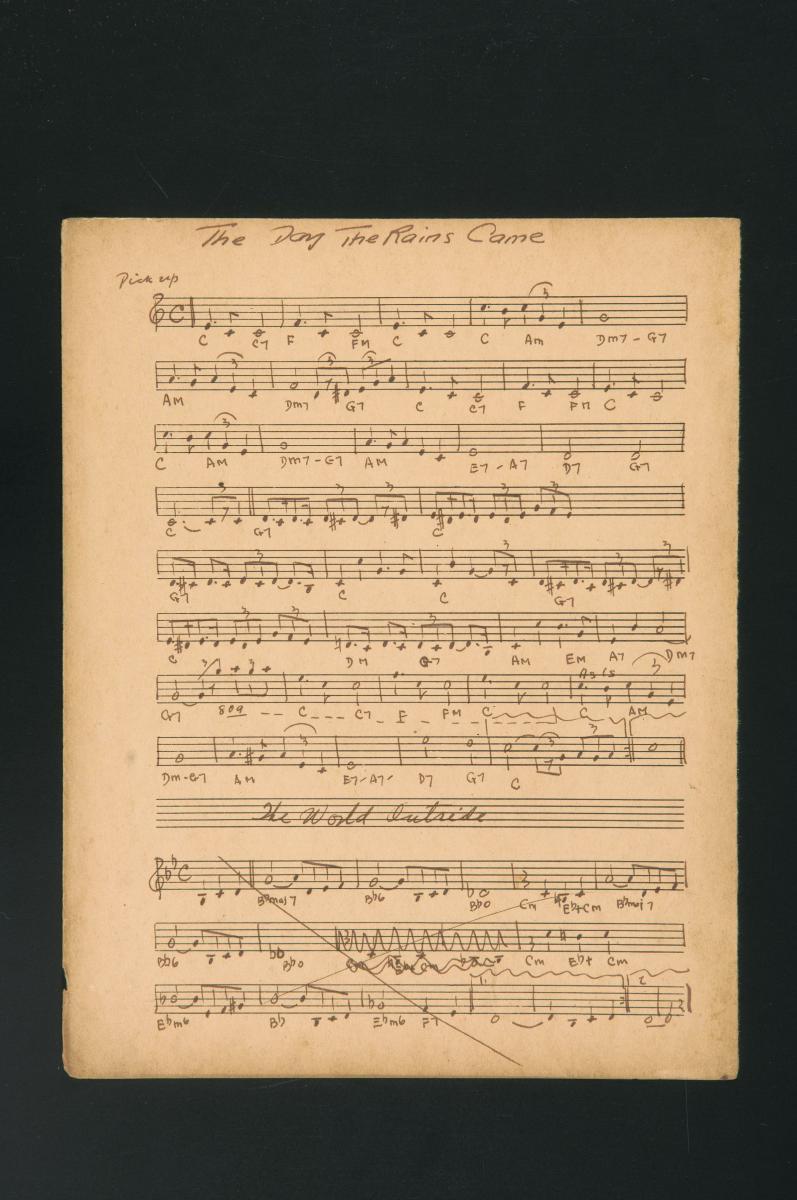 The Day The Rains Came
Pick up
C C7 F FM C C Am Dm7 - G7
AM Dm7 G7 C C7 F FM C
C AM Dm7 - G7 AM E7 - A7 D7 G7
C G7 C
G7 C C G7
C DM G7 AM EM A7 Dm7
G7 8va C C7 F FM C As is C AM
Dm-G7 AM E7-A7- D7 G7 C
The World Outside
Bbmaj7 Bb6 Bbo Cm Eb+ Cm Bbmaj7
Bb6 Bbo Cm Eb+ Cm
Ebm6 Bb Ebm6 F7 1. 2.